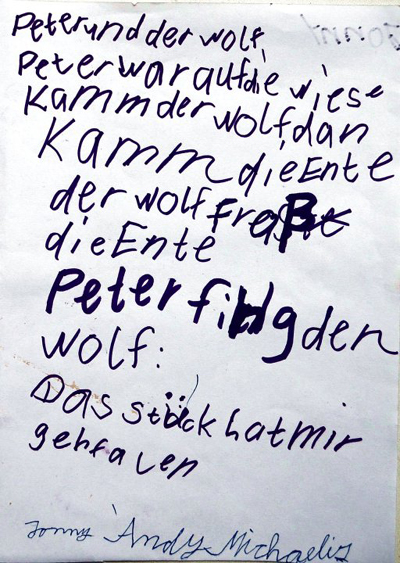 Peter und der wolf
Peter war auf die wiese
Kamm der wolf dan
Kamm die Ente
der wolf fraß
die Ente
Peter fing den
wolf:
Das stück hat mir
gehfalen
Jonny Andy Michaelis